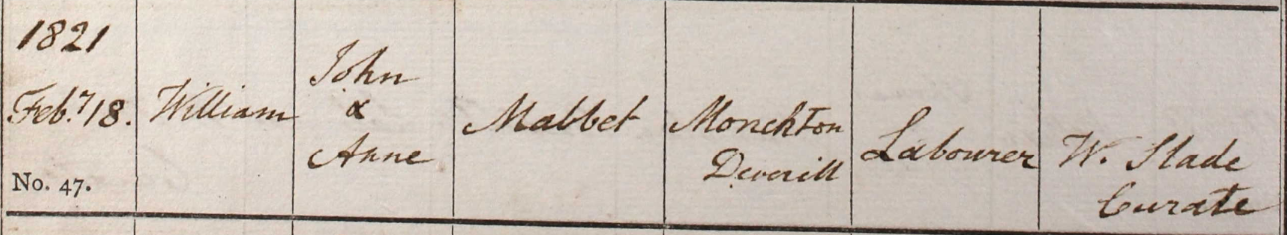 1821
Feby 18.
No. 47.
William
John
&
Anne
Mabbet
Monckton
Deverill
Labourer
W. Slade
Curate